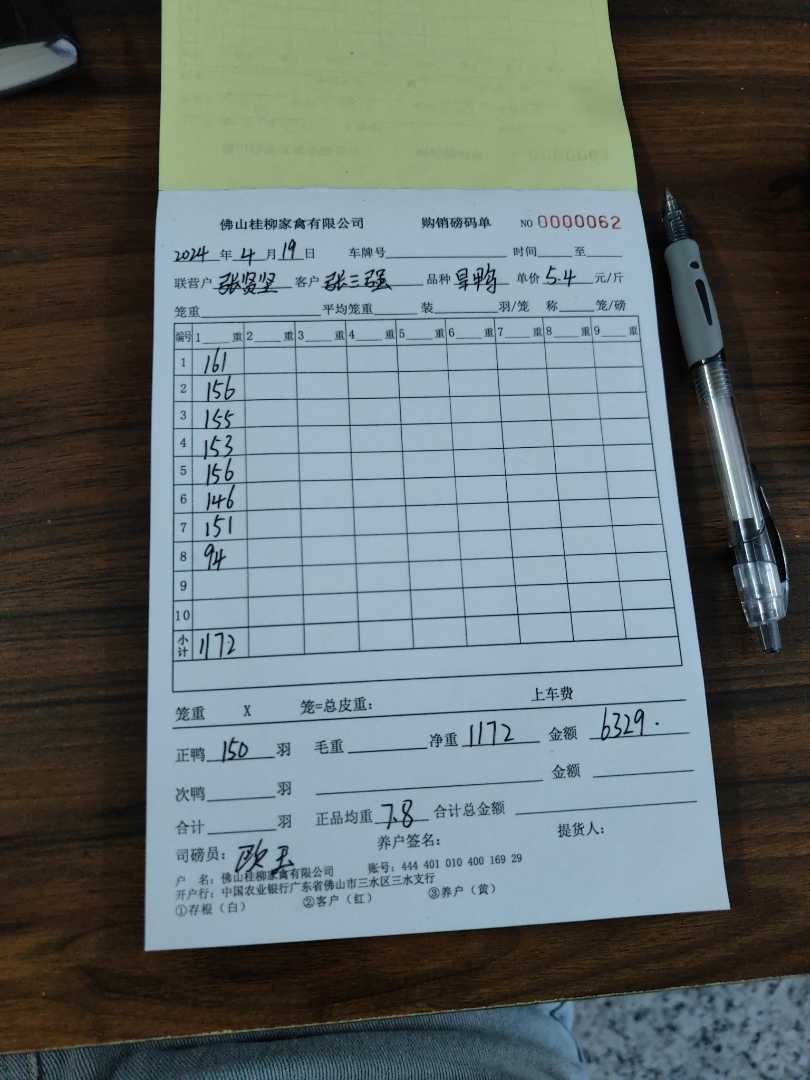 佛山桂柳家禽有限公司 购销磅码单 NO 0000062
2024 年 4 月 19 日 车牌号 时间 至
联营户 张贤坚 客户 张三强 品种 旱鸭 单价 5.4 元/斤
笼重 平均笼重 装 羽/笼 称 笼/磅
编号 1 重 2 重 3 重 4 重 5 重 6 重 7 重 8 重 9 重
1 161
2 156
3 155
4 153
5 156
6 146
7 151
8 94
9
10
小计 1172
笼重 X 笼=总皮重： 上车费
正鸭 150 羽 毛重 净重 1172 金额 6329.
次鸭 羽 金额
合计 羽 正品均重 7.8 合计总金额
司磅员： 养户签名： 提货人：
户 名：佛山桂柳家禽有限公司 账号：444 401 010 400 169 29
开户行：中国农业银行广东省佛山市三水区三水支行
①存根（白） ②客户（红） ③养户（黄）